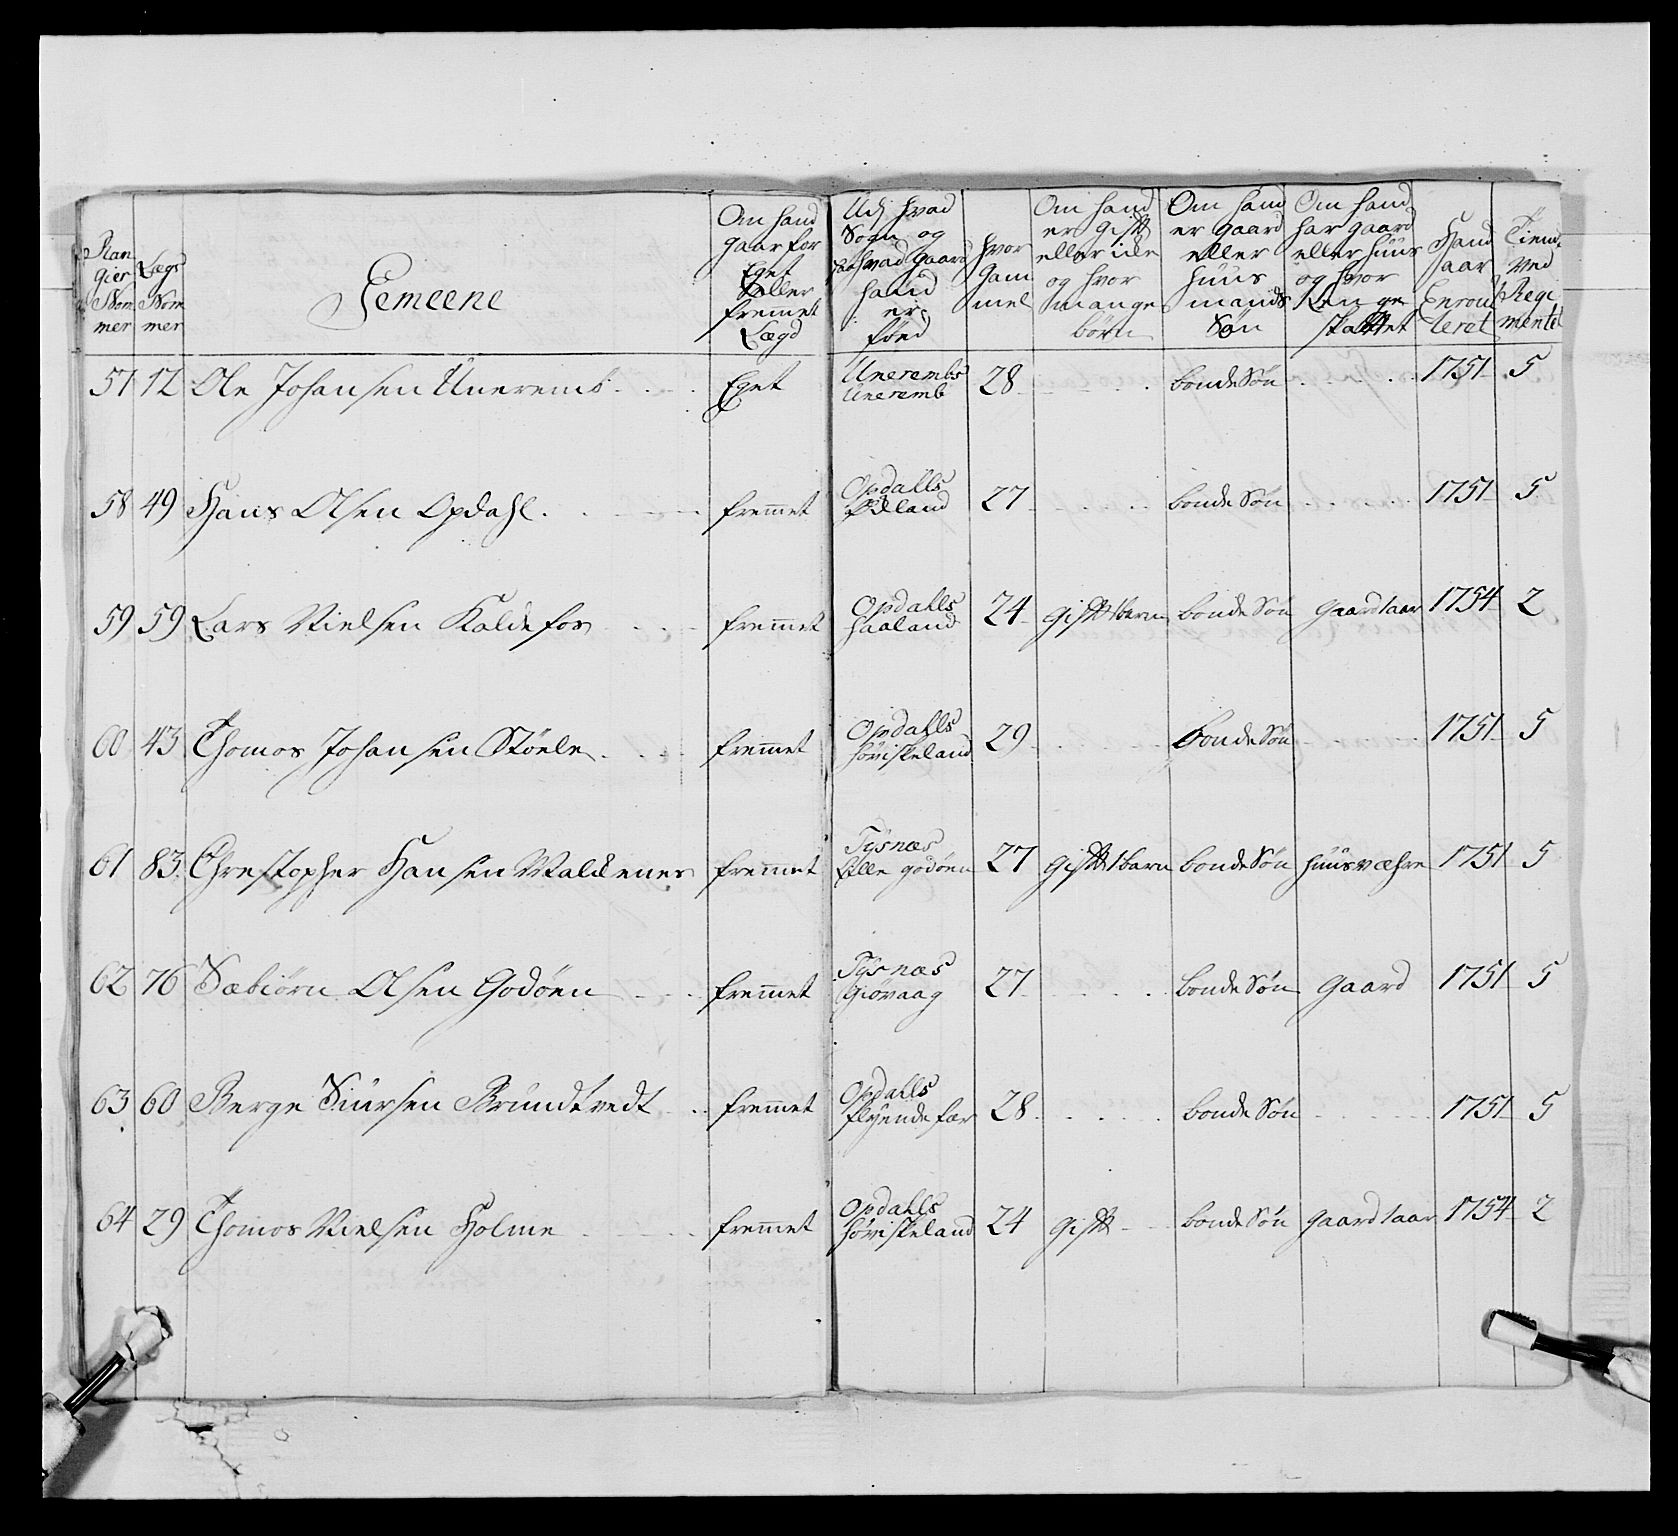 Ran gier Nom mer | Lægs Nom mer | Gemeene | Om hand gaar for Eget Eller fremet Lægd | Udj hvad Sogn og paa hvad Gaard hand er föed | hvor Gam mel | Om hand er Gift eller icke og hvor mange börn | Om hand er Gaard eller huus mands Sön | Om hand har gaard eller huus og hvor Lenge skattet | Hand aar Enroul leret | Tient ved Regi mentet
57 12 Ole Johansen Uneremb Eget Unerembs Uneremb 28 bonde Sön 1751 5
58 49 Hans Olsen Opdahl fremmet Opdalls Ødland 27 bonde Sön 1751 5
59 59 Lars Nielsen Kaldefos fremmet Opdalls Haaland 24 gift 1 barn bonde Sön gaard 1 aar 1754 2
60 43 Thomos Johansen Stöele fremmet Opdalls höviskeland 29 bonde Sön 1751 5
61 83 Chrestopher Hansen Waldener fremmet Tysnæs Ille godöen 27 gift 1 barn bonde Sön huusvæhre 1751 5
62 76 Sæbiörn Olsen Godöen fremmet Tysnæs Giövaag 27 bonde Sön Gaard 1751 5
63 60 Berge Siursen Brundtvedt fremmet Opdalls flyende fær 28 bonde Sön 1751 5
64 29 Thomos Nielsen Holme fremmet Opdalls höviskeland 24 gift bonde Sön gaard 1 aar 1754 2